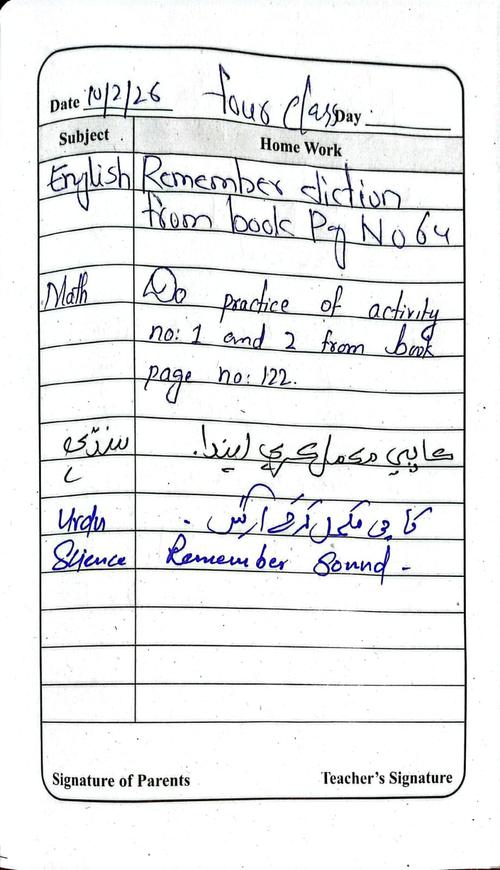 Date 10/2/26 four class Day
Subject Home Work
English Remember diction
from book Pg No 64
Math Do practice of activity
no: 1 and 2 from book
page no: 122.
سنڌي ڪاپي مڪمل ڪري ايندا.
Urdu کاپی مکمل کرکے آئیں .
Science Remember Sound -
Signature of Parents Teacher's Signature